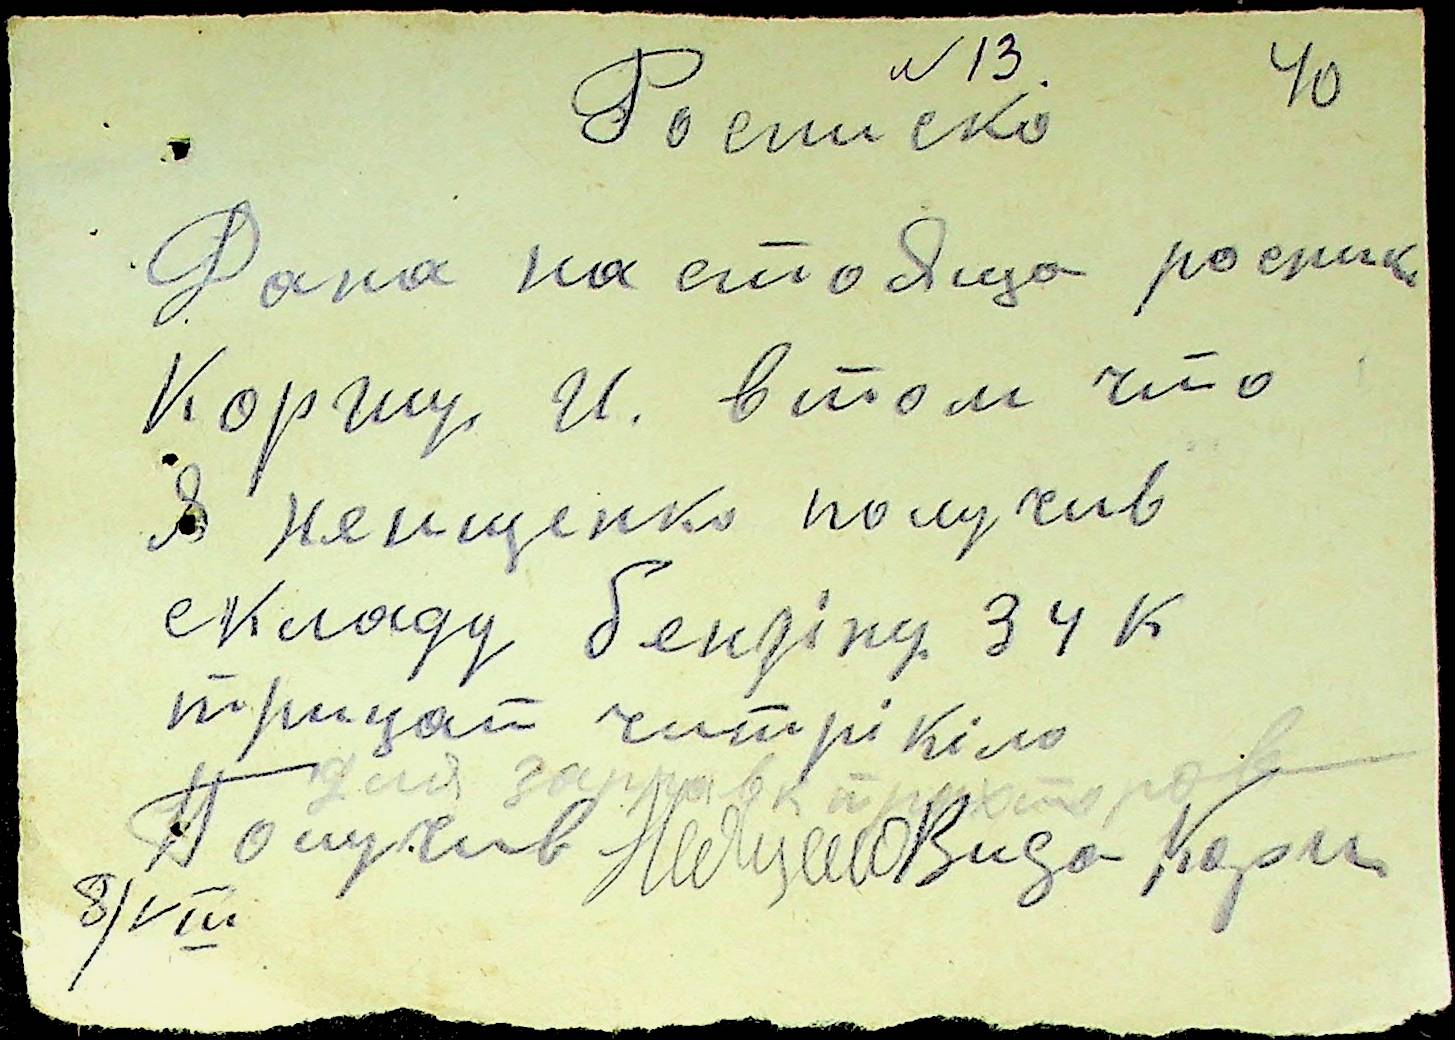 № 13. 40
Росписка
Дана настояща роспик
Коржу И. втом что
Я получив
складу бензіну 34 к
трицат читрі кіло
для заправк трахторов
Получив Видав Корж
8/VIII